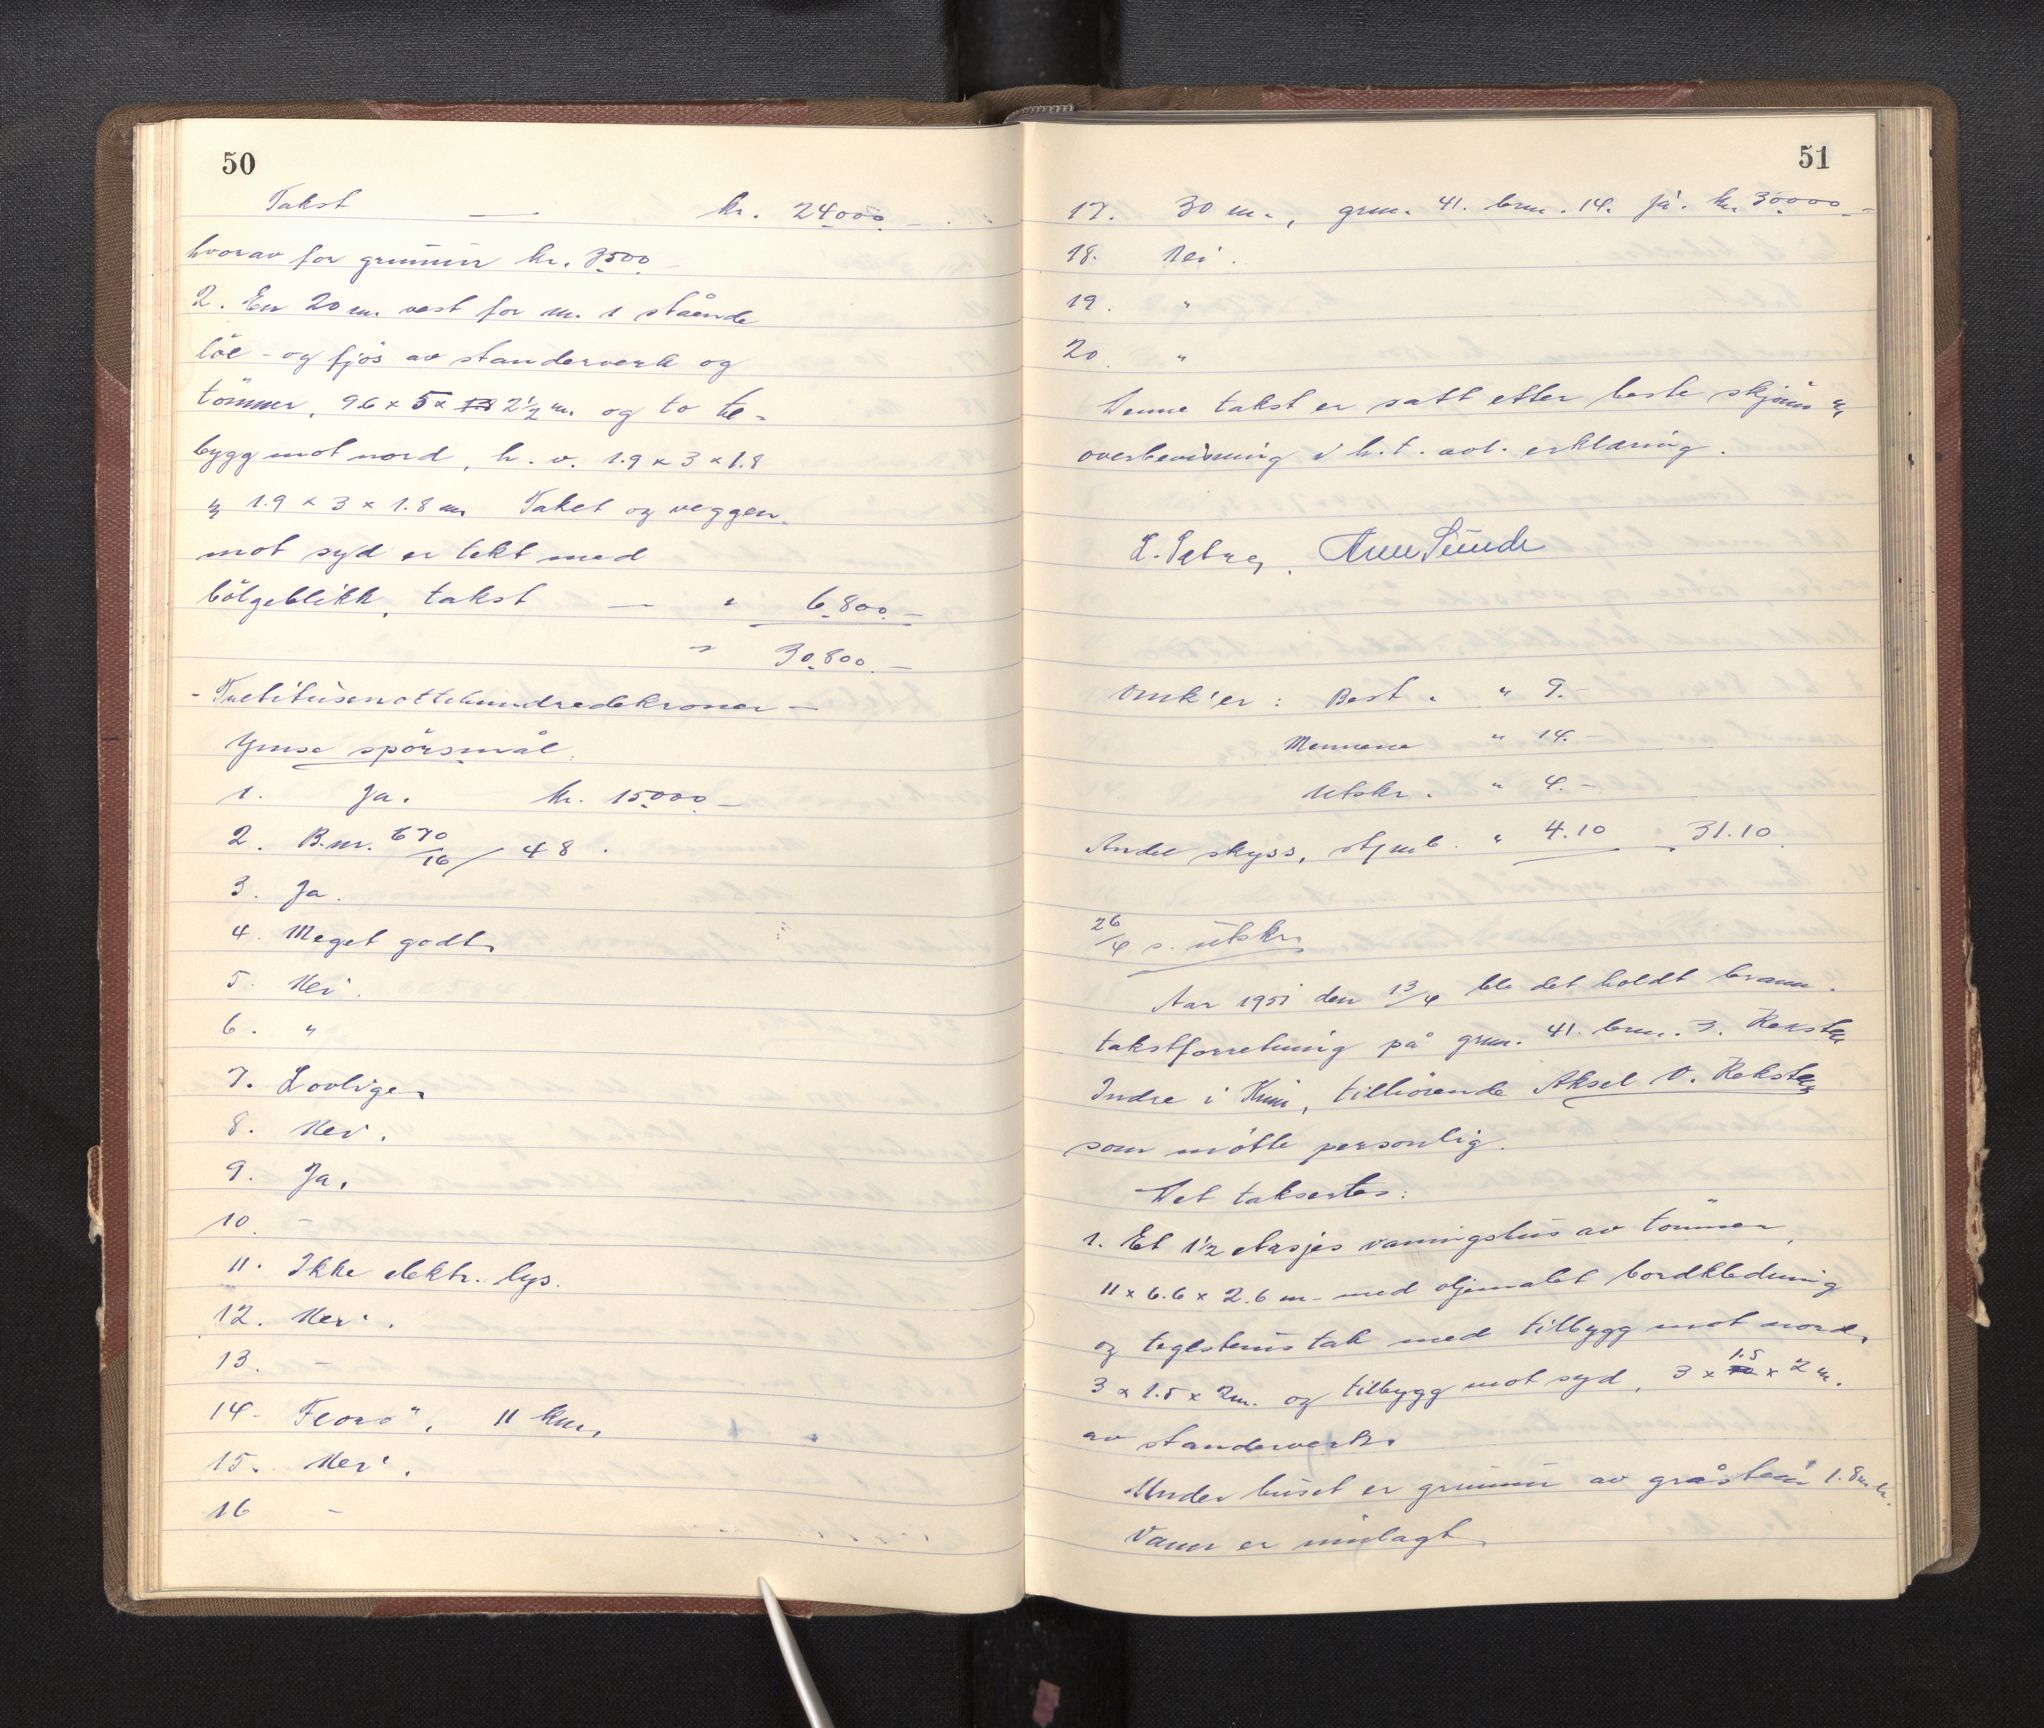 50
Takst — kr. 24000.–
hvorav for grunnur kr. 3500.–
2. En 20 m. vest for nr. 1 stående
löe- og fjös av standerverk og
tömmer, 96 x 5 x 2½ m. og to te-
bygg mot nord, h. v. 1.9 x 3 x 1.8
og 1.9 x 3 x 1.8 m. Taket og veggen
mot syd er tekt med
bölgeblikk, takst — " 6.800.–
" 30.800.–
- Trettitusenottehundredekroner –
Ymse spörsmål.
1. Ja. kr. 15000.–
2. B.nr. 670/16 / 48.
3. Ja.
4. Meget godt.
5. Nei.
6. "
7. Lovlige.
8. Nei.
9. Ja.
10. –
11. Ikke elektr. lys.
12. Nei.
13. –
14. Florö, 11 km.
15. Nei.
16 –
51
17. 30 m., gnr. 41. bnr. 14. Ja. kr. 30000.–
18. Nei.
19. "
20. "
Denne takst er satt etter beste skjönn og
overbevisning i h.t. avl. erklæring.
Sunde
Omk'er: Best. " 9.–
Mennene " 14.–
Utskr. " 4.–
Andel skyss, " 4.10 31.10
26/4 s. utskr.
Aar 1951 den 13/4 ble det holdt brann-
takstforretning på gnr. 41. bnr. 3. Reksta
Indre i Kinn, tilhörende Aksel O. Reksta
som mötte personlig.
Det taksertes:
1. Et 1½ etasjes vaningshus av tömmer,
11 x 6.6 x 2.6 m. med oljemalet bordkledning
og teglstenstak med tilbygg mot nord,
3 x 1.5 x 2m. og tilbygg mot syd, 3 x 1.5 x 2 m.
av standerverk.
Under huset er grunnur av gråstein 1.8 m h.
Vann er innlagt.